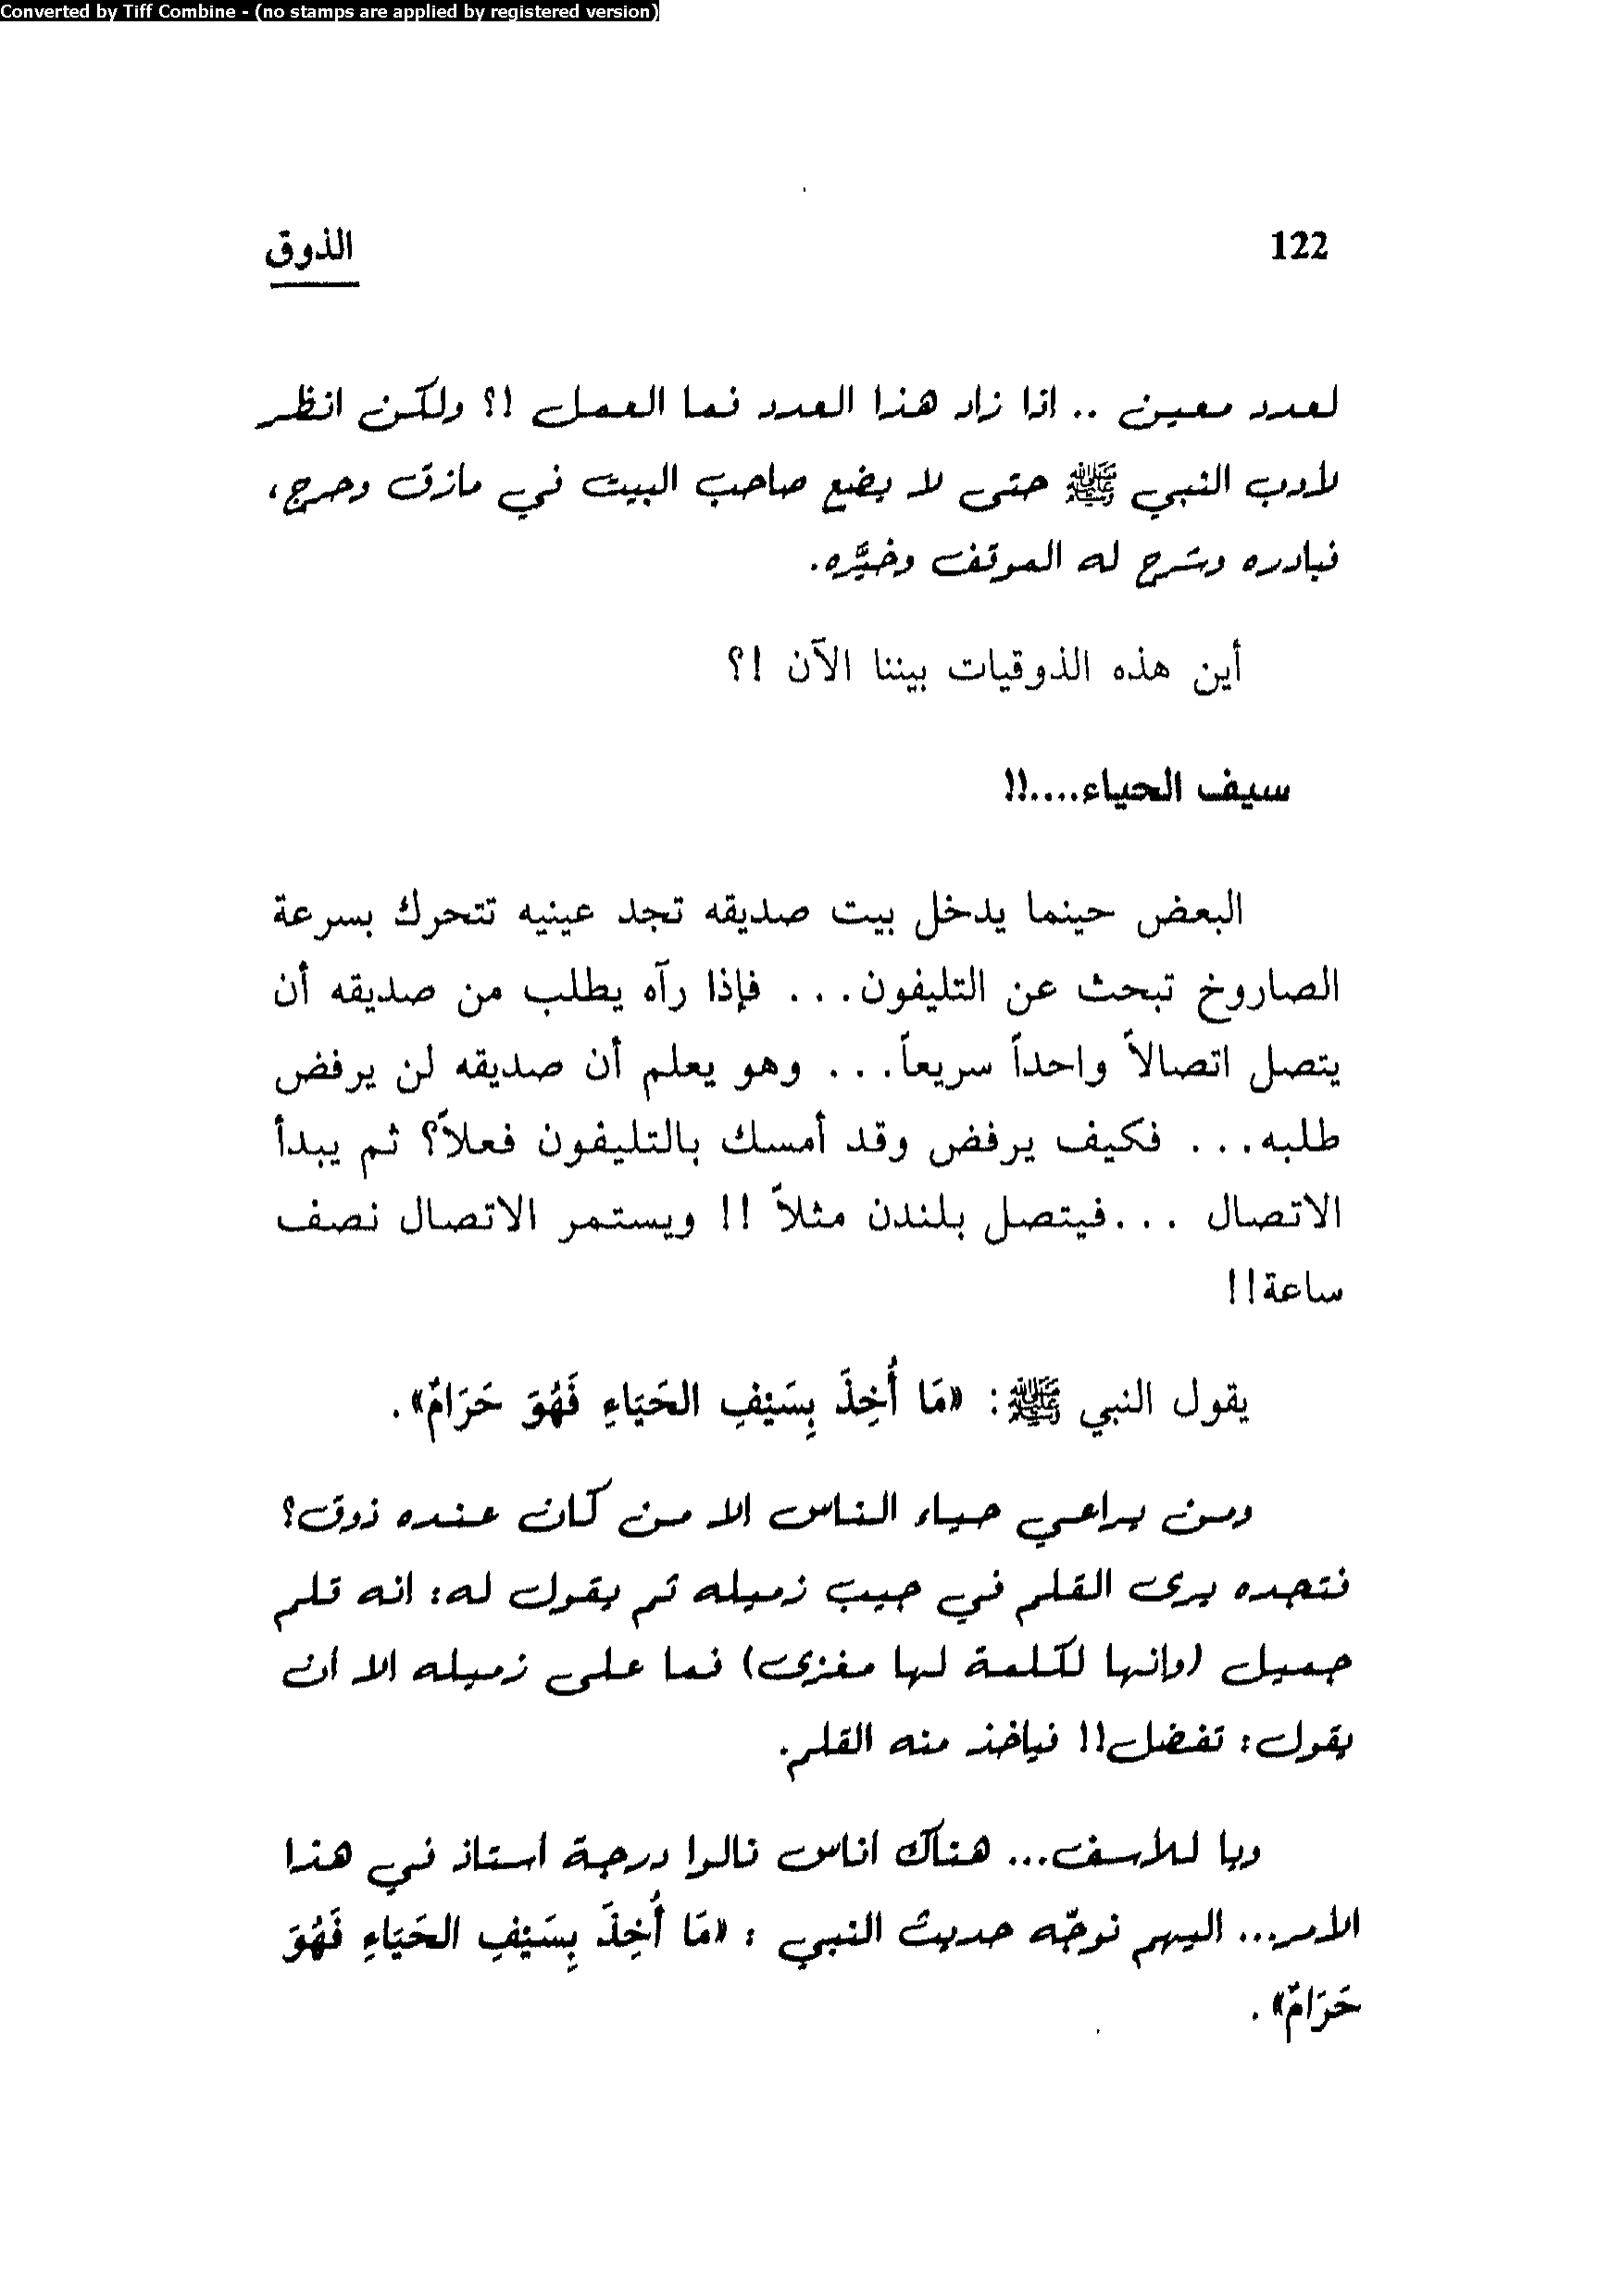 Converted by Tiff Combine - (no stamps are applied by registered version)
122
الذوق
لعدد معين .. اذا زاد هذا العدد فما العمل !؟ ولكن انظر
لادب النبي ﷺ حتى لا يضع صاحب البيت في مازق وحرج،
فبادره وشرح له الموقف وخيَّره.
أين هذه الذوقيات بيننا الآن !؟
سيف الحياء....!!
البعض حينما يدخل بيت صديقه تجد عينيه تتحرك بسرعة
الصاروخ تبحث عن التليفون... فإذا رآه يطلب من صديقه أن
يتصل اتصالاً واحداً سريعاً... وهو يعلم أن صديقه لن يرفض
طلبه... فكيف يرفض وقد أمسك بالتليفون فعلاً؟ ثم يبدأ
الاتصال ...فيتصل بلندن مثلاً !! ويستمر الاتصال نصف
ساعة!!
يقول النبي ﷺ: «مَا أُخِذَ بِسَيْفِ الحَيَاءِ فَهُوَ حَرَامٌ».
ومن يراعي حياء الناس الا من كان عنده ذوق؟
فتجده يرى القلم في جيب زميله ثم يقول له: انه قلم
جميل (وانها لكلمة لها مغزى) فما على زميله الا ان
يقول: تفضل!! فياخذ منه القلم.
ويا للاسف... هناك اناس نالوا درجة استاذ في هذا
الامر... اليهم نوجّه حديث النبي : «مَا أُخِذَ بِسَيْفِ الحَيَاءِ فَهُوَ
حَرَامٌ» .